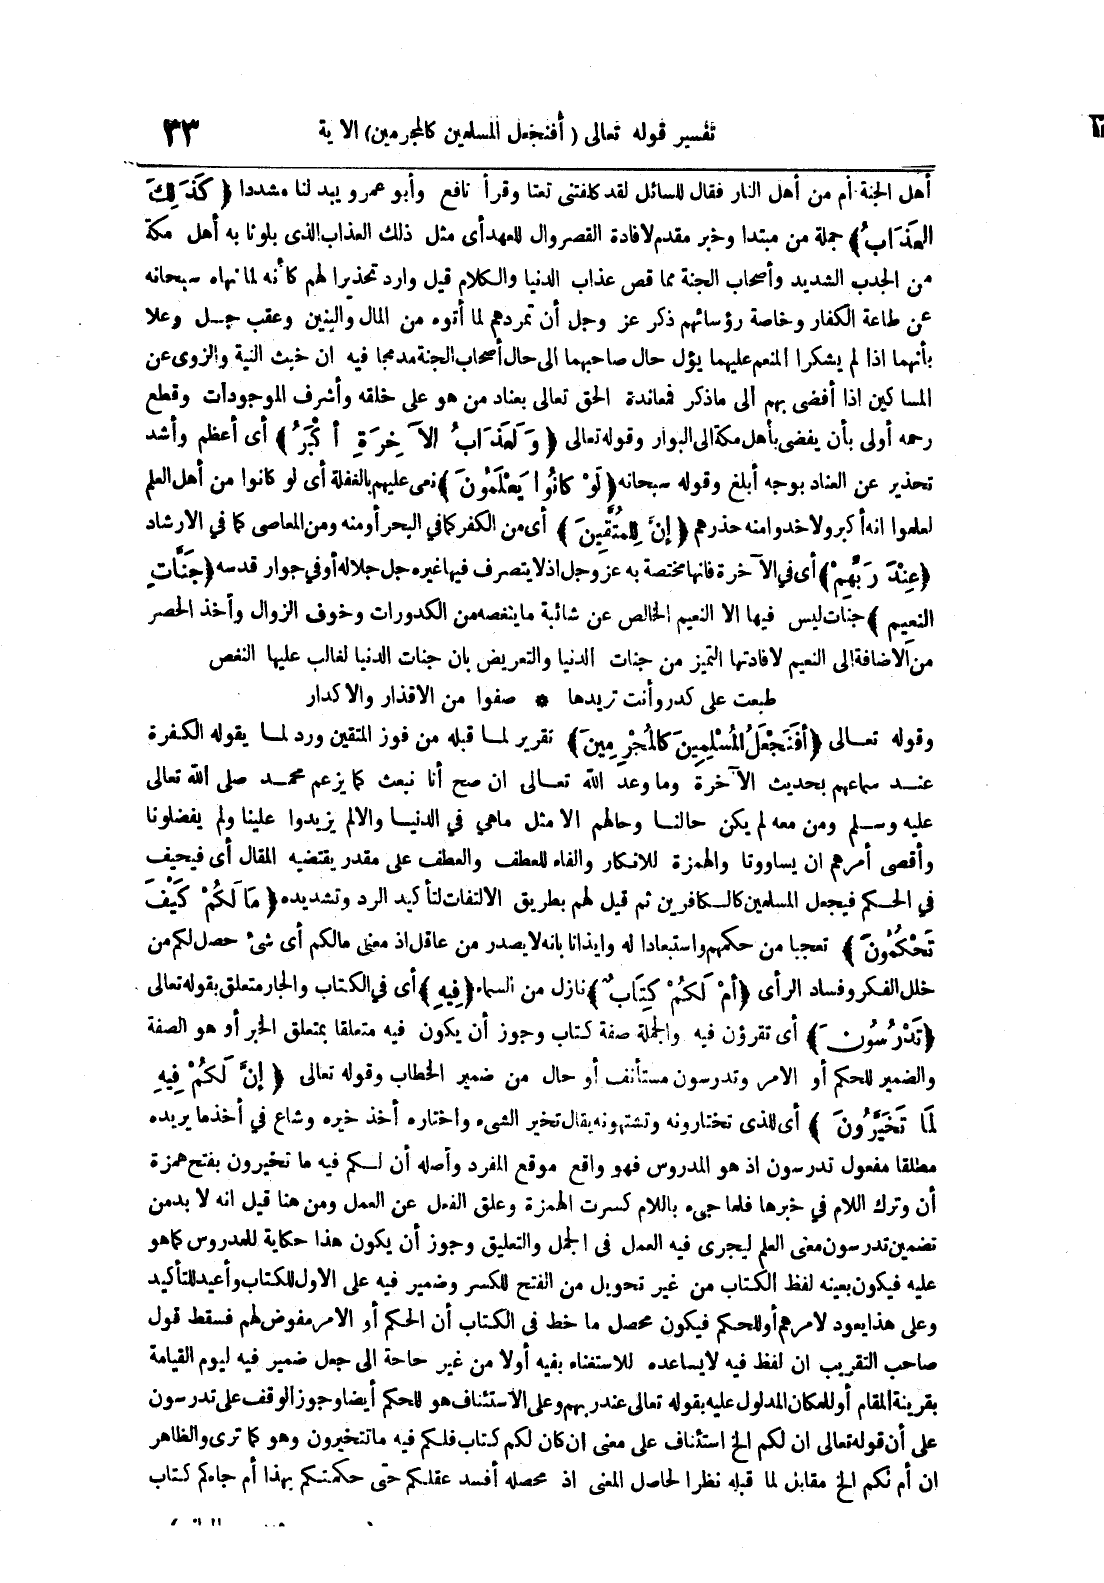 تفسير قوله تعالى ( أفنجعل المسلمين كالمجرمين) الآية ٣٣
أهل الجنة أم من أهل النار فقال للسائل لقد كلفتنى تعبا وقرأ نافع وأبو عمرو يبدلنا مشددا ﴿ كَذَلِكَ
العَذَابُ﴾ جملة من مبتدا وخبر مقدم لافادة القصر وال للعهد أى مثل ذلك العذاب الذى بلونا به أهل مكة
من الجدب الشديد وأصحاب الجنة مما قص عذاب الدنيا والكلام قيل وارد تحذيرا لهم كأنه لما نهاه سبحانه
عن طاعة الكفار وخاصة رؤسائهم ذكر عز وجل أن تمردهم لما أتوه من المال والبنين وعقب جل وعلا
بأنهما اذا لم يشكرا المنعم عليهما يؤل حال صاحبهما الى حال أصحاب الجنة مدمجا فيه ان خبث النية والزوى عن
المساكين اذا أفضى بهم الى ماذكر فمعاندة الحق تعالى بعناد من هو على خلقه وأشرف الموجودات وقطع
رحمه أولى بأن يفضى بأهل مكة الى البوار وقوله تعالى ﴿ وَلَعَذَابُ الآخِرَةِ أَكْبَرُ﴾ أى أعظم وأشد
تحذير عن العناد بوجه أبلغ وقوله سبحانه ﴿لَوْ كَانُوا يَعْلَمُونَ﴾ نعى عليهم بالغفلة أى لو كانوا من أهل العلم
لعلموا انه أكبر ولاخذوا منه حذرهم ﴿ إِنَّ لِلْمُتَّقِينَ ﴾ أى من الكفر كما فى البحر أومنه ومن المعاصى كما فى الارشاد
﴿عِنْدَ رَبِّهِمْ﴾ أى فى الآخرة فانها مختصة به عز وجل اذ لا يتصرف فيها غيره جل جلاله أو فى جوار قدسه ﴿جَنَّاتِ
النعيم ﴾ جنات ليس فيها الا النعيم الخالص عن شائبة ماينغصه من الكدورات وخوف الزوال وأخذ الحصر
من الاضافة الى النعيم لافادتها التميز من جنات الدنيا والتعريض بان جنات الدنيا لغالب عليها النغص
طبعت على كدر وأنت تريدها * صفوا من الاقذار والاكدار
وقوله تعالى ﴿أَفَنَجْعَلُ المُسْلِمِينَ كالمُجْرِمِينَ﴾ تقرير لما قبله من فوز المتقين ورد لما يقوله الكفرة
عند سماعهم بحديث الآخرة وما وعد الله تعالى ان صح أنا نبعث كما يزعم محمد صلى الله تعالى
عليه وسلم ومن معه لم يكن حالنا وحالهم الا مثل ماهي في الدنيا والالم يزيدوا علينا ولم يفضلونا
وأقصى أمرهم ان يساوونا والهمزة للانكار والفاء للعطف والعطف على مقدر يقتضيه المقال أى فيحيف
فى الحكم فيجعل المسلمين كالكافرين ثم قيل لهم بطريق الالتفات لتأكيد الرد وتشديده ﴿ مَا لَكُمْ كَيْفَ
تَحْكُمُونَ ﴾ تعجبا من حكمهم واستبعادا له وايذانا بانه لايصدر من عاقل اذ معنى مالكم أى شئ حصل لكم من
خلل الفكر وفساد الرأى ﴿ أَمْ لَكُمْ كِتَابٌ ﴾ نازل من السماء ﴿ فِيهِ ﴾ أى فى الكتاب والجار متعلق بقوله تعالى
﴿تَدْرُسُونَ ﴾ أى تقرؤن فيه والجملة صفة كتاب وجوز أن يكون فيه متعلقا بمتعلق الخبر أو هو الصفة
والضمير للحكم أو الامر وتدرسون مستأنف أو حال من ضمير الخطاب وقوله تعالى ﴿ إِنَّ لَكُمْ فِيهِ
لَمَا تَخَيَّرُونَ ﴾ أى للذى تختارونه وتشتهونه يقال تخير الشىء واختاره أخذ خيره وشاع فى أخذ ما يريده
مطلقا مفعول تدرسون اذ هو المدروس فهو واقع موقع المفرد وأصله أن لكم فيه ما تخيرون بفتح همزة
أن وترك اللام فى خبرها فلما جىء باللام كسرت الهمزة وعلق الفعل عن العمل ومن هنا قيل انه لا بد من
تضمين تدرسون معنى العلم ليجرى فيه العمل فى الجمل والتعليق وجوز أن يكون هذا حكاية للمدروس كما هو
عليه فيكون بعينه لفظ الكتاب من غير تحويل من الفتح للكسر وضمير فيه على الاول للكتاب وأعيد للتأكيد
وعلى هذا يعود لامرهم أو للحكم فيكون محصل ما خط فى الكتاب أن الحكم أو الامر مفوض لهم فسقط قول
صاحب التقريب ان لفظ فيه لايساعده للاستغناء بفيه أولا من غير حاجة الى جعل ضمير فيه ليوم القيامة
بقرينة المقام أو للمكان المدلول عليه بقوله تعالى عند ربهم وعلى الاستئناف هو للحكم أيضا وجوز الوقف على تدرسون
على أن قوله تعالى ان لكم الخ استئناف على معنى ان كان لكم كتاب فلكم فيه ماتتخيرون وهو كما ترى والظاهر
ان أم لكم الخ مقابل لما قبله نظرا لحاصل المعنى اذ محصله أفسد عقلكم حتى حكمتكم بهذا أم جاءكم كتاب